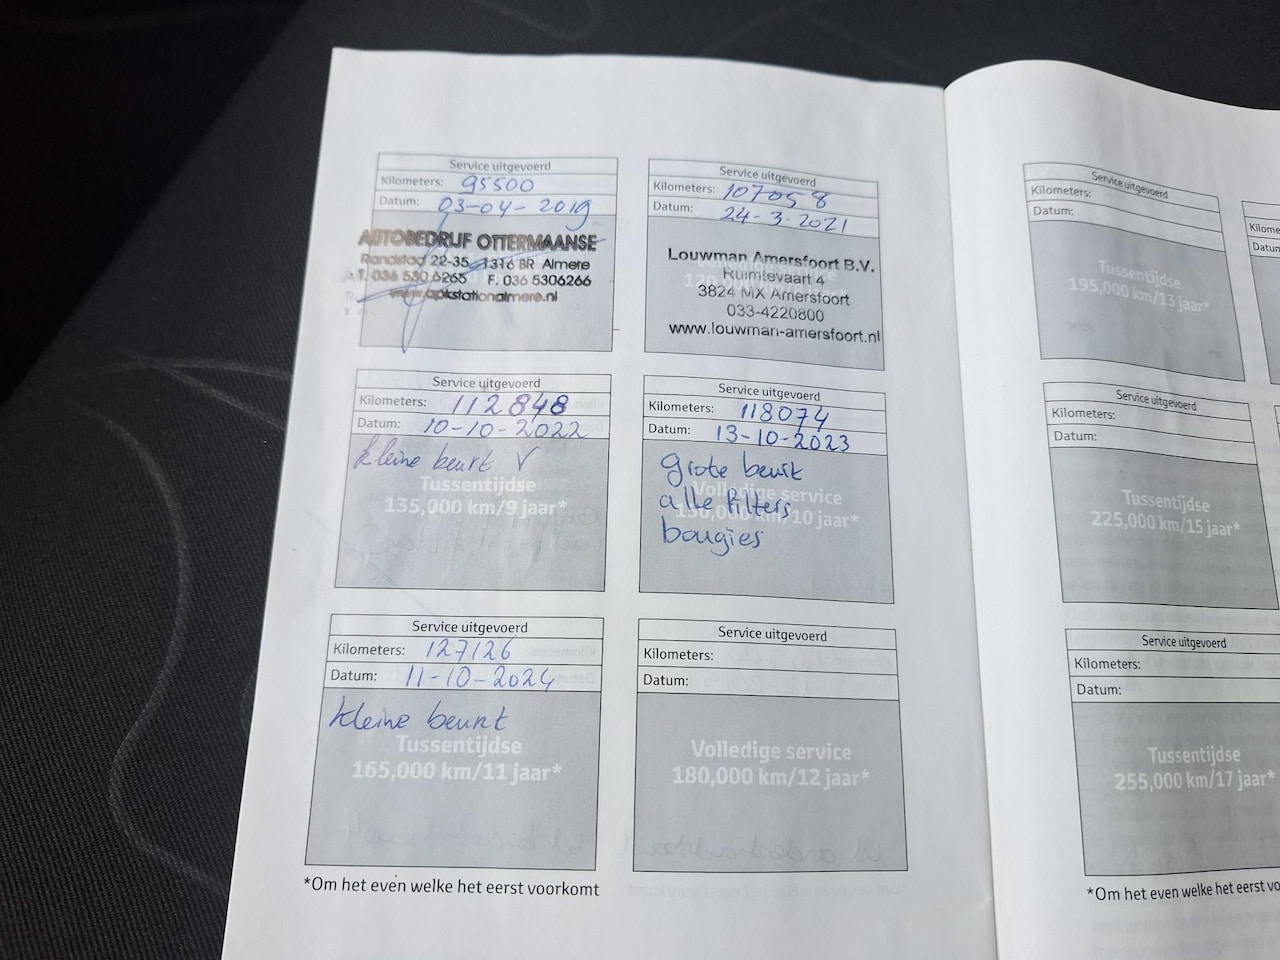 Service uitgevoerd
Kilometers: 95500
Datum: 03-04-2019
AUTOBEDRIJF OTTERMAANSE
Randstad 22-35, 1316 BR Almere
T. 036 530 6265 F. 036 5306266
www.apkstationalmere.nl
Service uitgevoerd
Kilometers: 107058
Datum: 24-3-2021
Louwman Amersfoort B.V.
Ruimtevaart 4
3824 MX Amersfoort
033-4220800
www.louwman-amersfoort.nl
Service uitgevoerd
Kilometers: 112848
Datum: 10-10-2022
kleine beurt V
Tussentijdse
135,000 km/9 jaar*
Service uitgevoerd
Kilometers: 118074
Datum: 13-10-2023
grote beurt
Volledige service
alle filters
150,000 km/10 jaar*
bougies
Service uitgevoerd
Kilometers: 127126
Datum: 11-10-2024
kleine beurt
Tussentijdse
165,000 km/11 jaar*
Service uitgevoerd
Kilometers:
Datum:
Volledige service
180,000 km/12 jaar*
*Om het even welke het eerst voorkomt
Service uitgevoerd
Kilometers:
Datum:
Tussentijdse
195,000 km/13 jaar*
Service uitgevoerd
Kilometers:
Datum:
Tussentijdse
225,000 km/15 jaar*
Service uitgevoerd
Kilometers:
Datum:
Tussentijdse
255,000 km/17 jaar*
*Om het even welke het eerst